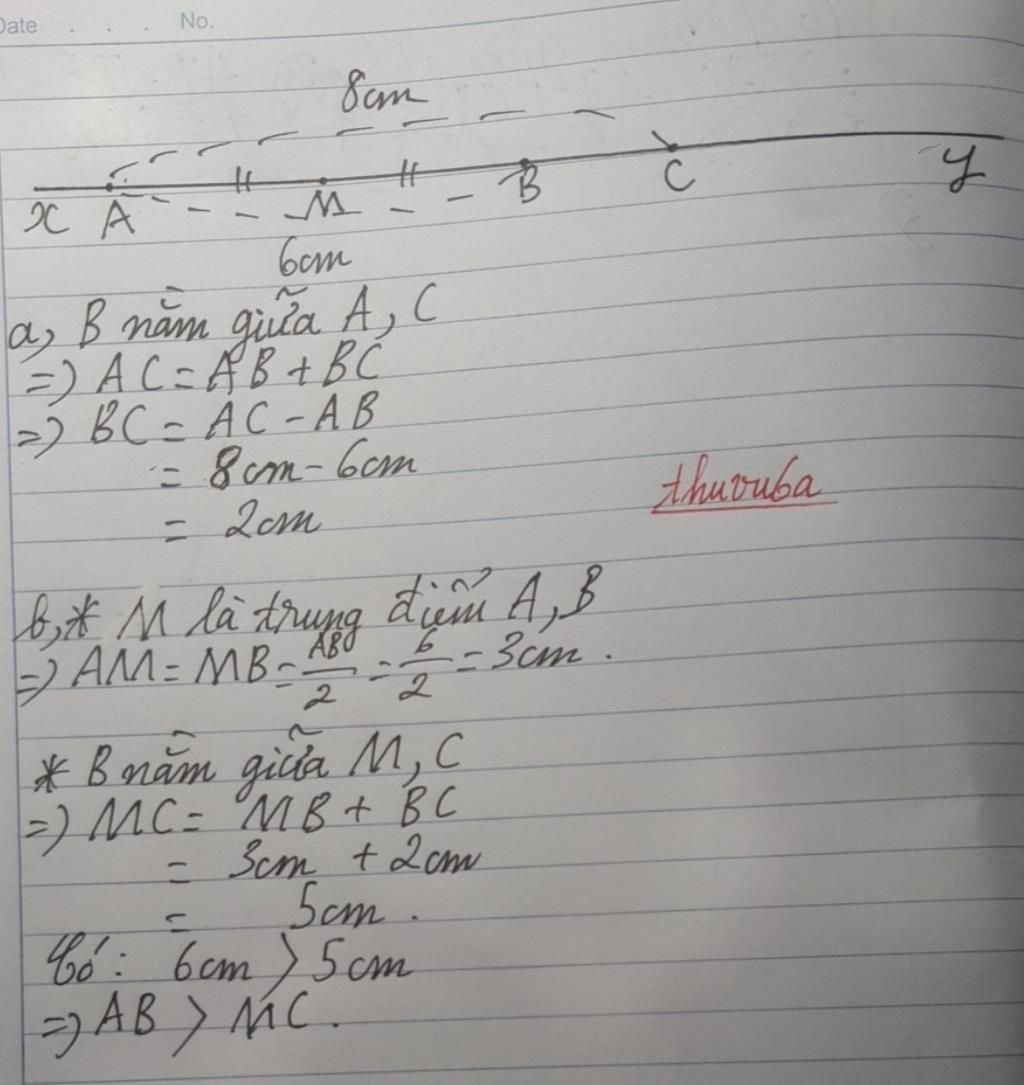 Date . . . No.
8cm
x A M B C y
6cm
a, B nằm giữa A, C
=) AC = AB + BC
=) BC = AC - AB
= 8cm - 6cm
= 2cm
thuvuba
b, * M là trung điểm A, B
=) AM = MB = AB/2 = 6/2 = 3cm .
* B nằm giữa M, C
=) MC = MB + BC
= 3cm + 2cm
= 5cm .
Có: 6cm > 5cm
=) AB > MC .